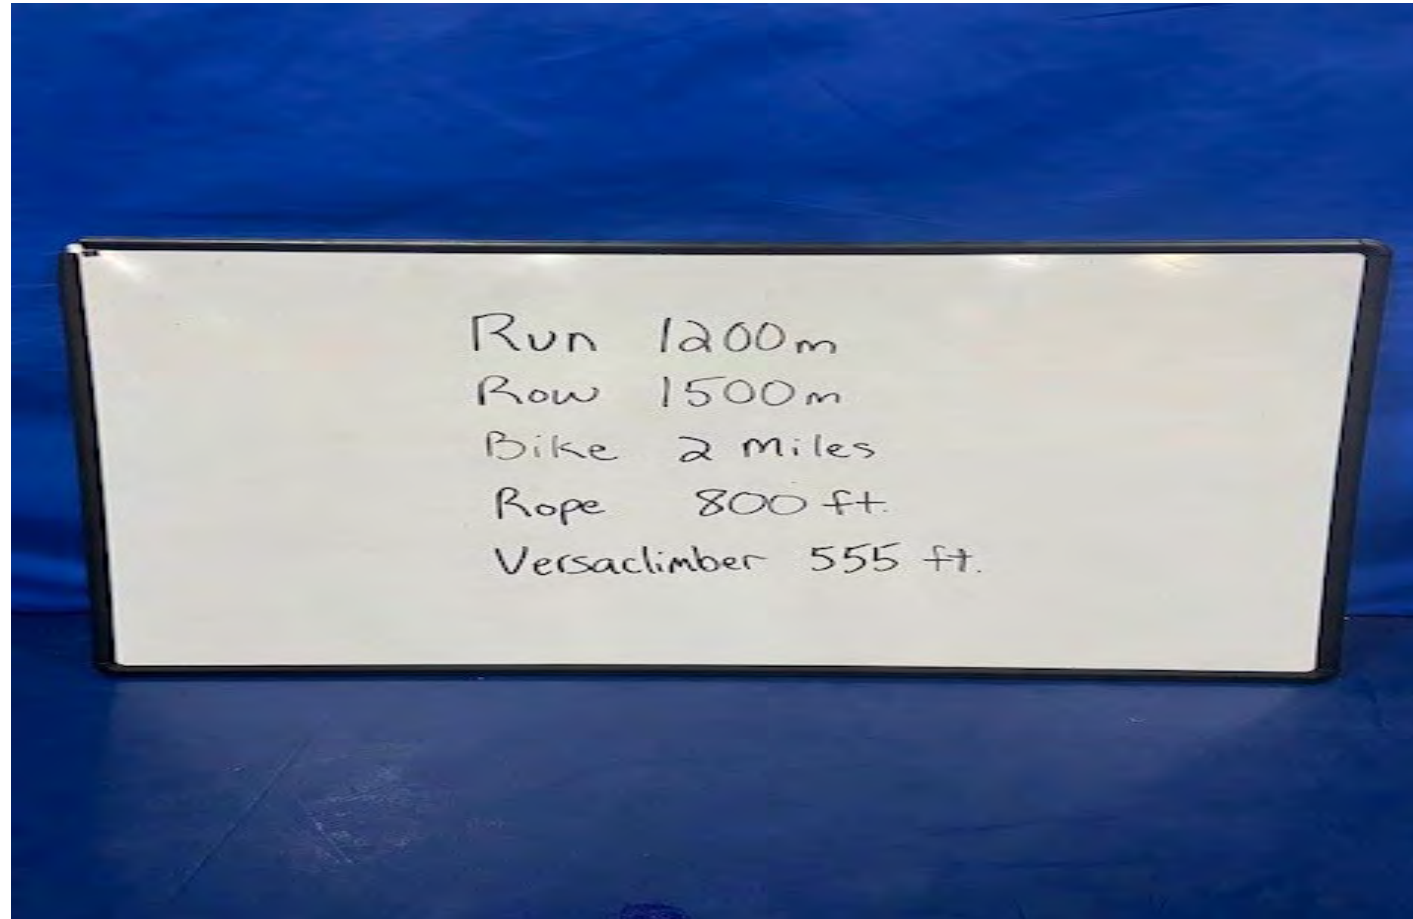 Run 1200m
Row 1500m
Bike 2 Miles
Rope 800 ft.
Versaclimber 555 ft.